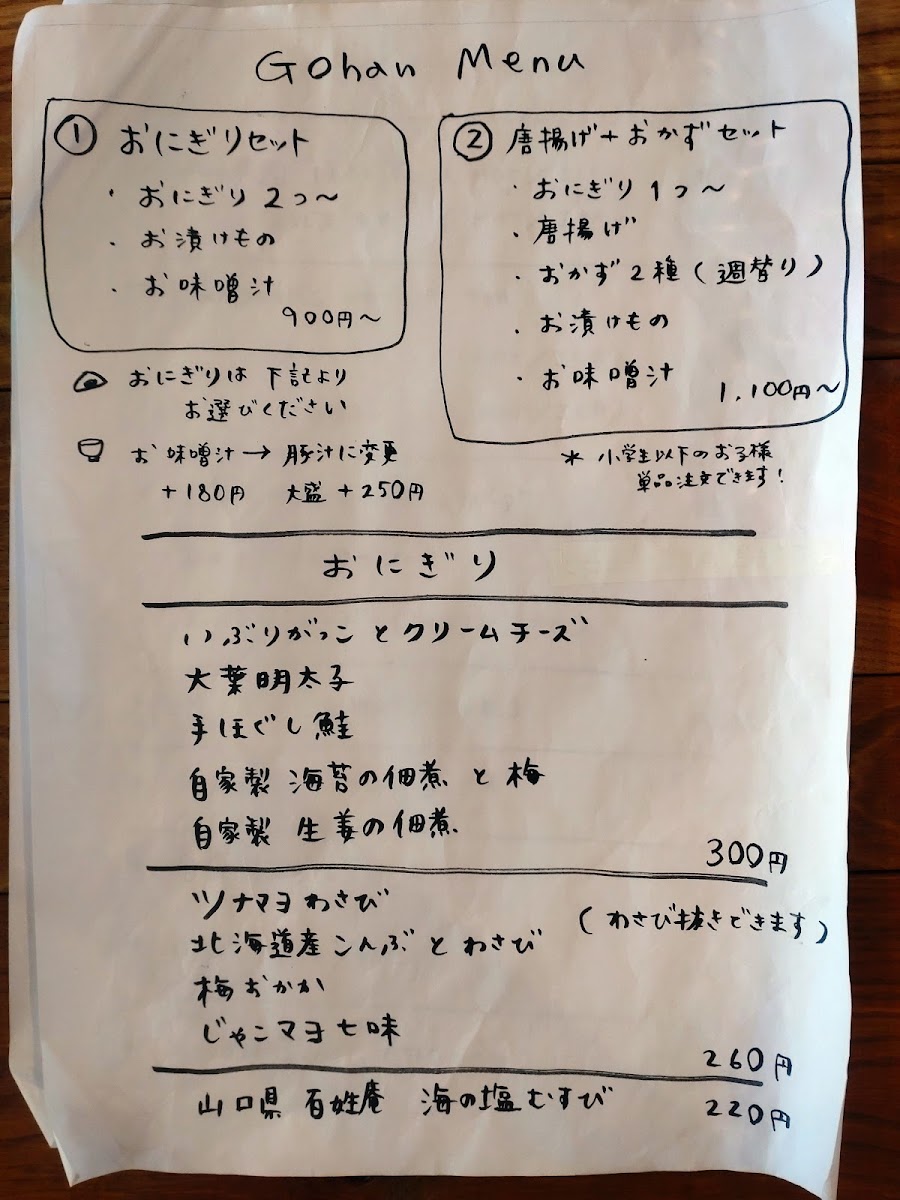 Gohan Menu
① おにぎりセット
・ おにぎり 2つ〜
・ お漬けもの
・ お味噌汁
900円〜
② 唐揚げ+おかずセット
・ おにぎり 1つ〜
・ 唐揚げ
・ おかず2種(週替り)
・ お漬けもの
・ お味噌汁
1,100円〜
おにぎりは 下記より
お選びください
お味噌汁→ 豚汁に変更
+180円 大盛 +250円
* 小学生以下のお子様
単品注文できます!
おにぎり
いぶりがっことクリームチーズ
大葉明太子
手ほぐし鮭
自家製 海苔の佃煮 と 梅
自家製 生姜の佃煮
300円
ツナマヨわさび
(わさび抜きできます)
北海道産こんぶとわさび
梅おかか
じゃこマヨ七味
260円
山口県 百姓庵 海の塩むすび 220円